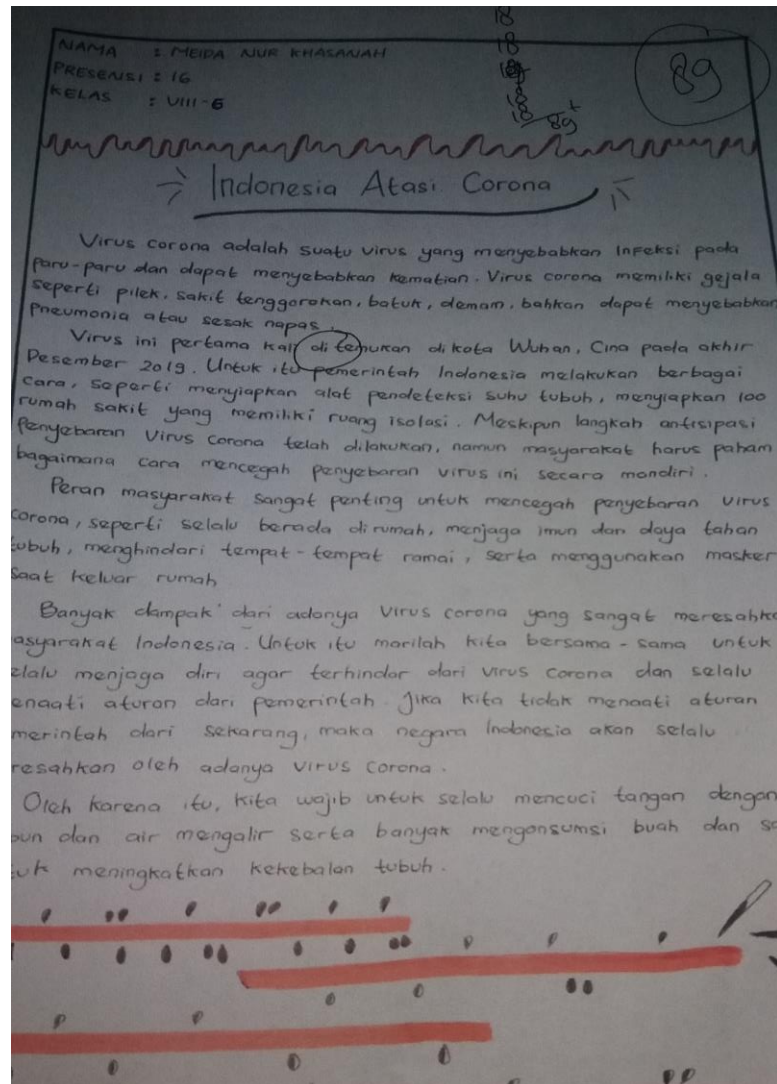 18
18
18
18
89
NAMA : MEIDA NUR KHASANAH
PRESENSI : 16
KELAS : VIII-6
Indonesia Atasi Corona
Virus corona adalah suatu virus yang menyebabkan Infeksi pada
paru-paru dan dapat menyebabkan kematian. Virus corona memiliki gejala
seperti pilek, sakit tenggorokan, batuk, demam, bahkan dapat menyebabkan
Pneumonia atau sesak napas.
Virus ini pertama kali di temukan di kota Wuhan, Cina pada akhir
Desember 2019. Untuk itu pemerintah Indonesia melakukan berbagai
cara, seperti menyiapkan alat pendeteksi suhu tubuh, menyiapkan 100
rumah sakit yang memiliki ruang isolasi. Meskipun langkah antisipasi
Penyebaran Virus Corona telah dilakukan, namun masyarakat harus paham
bagaimana cara mencegah penyebaran virus ini secara mandiri.
Peran masyarakat sangat penting untuk mencegah penyebaran virus
corona, seperti selalu berada dirumah, menjaga imun dan daya tahan
tubuh, menghindari tempat-tempat ramai, serta menggunakan masker
Saat keluar rumah
Banyak dampak dari adanya Virus corona yang sangat meresahk
asyarakat Indonesia. Untuk itu marilah kita bersama-sama untuk
elalu menjaga diri agar terhindar dari virus corona dan selalu
enaati aturan dari pemerintah. Jika kita tidak menaati aturan
merintah dari sekarang, maka negara Indonesia akan selalu
resahkan oleh adanya virus corona.
Oleh karena itu, kita wajib untuk selalu mencuci tangan dengan
bun dan air mengalir serta banyak mengonsumsi buah dan sa
tuk meningkatkan kekebalan tubuh.